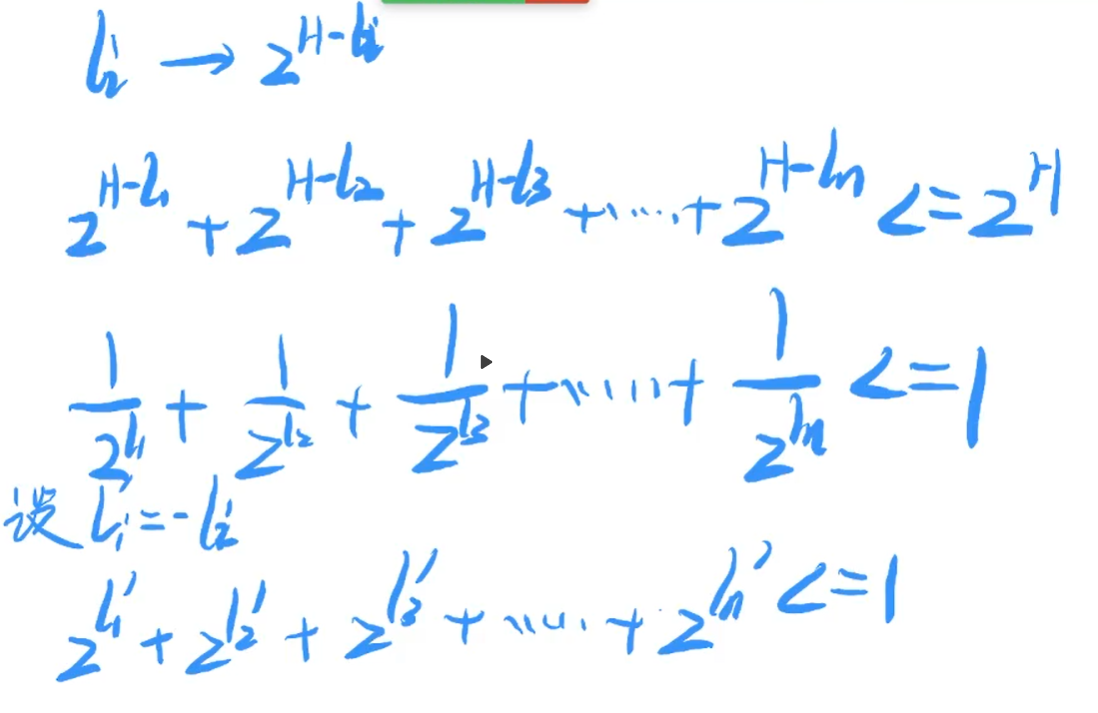 lᵢ → 2^{H-lᵢ}
2^{H-l₁} + 2^{H-l₂} + 2^{H-l₃} + ...... + 2^{H-lₙ} <= 2^H
1/2^{l₁} + 1/2^{l₂} + 1/2^{l₃} + ...... + 1/2^{lₙ} <= 1
设 lᵢ' = -lᵢ
2^{l₁'} + 2^{l₂'} + 2^{l₃'} + ...... + 2^{lₙ'} <= 1